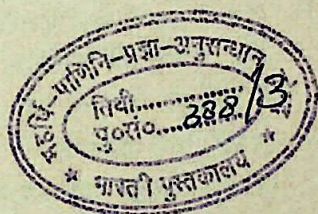 महर्षि-पाणिनि-प्रज्ञा-अनुसन्धान
तिथी..............
पु०सं०......288/3
* भारती पुस्तकालय *